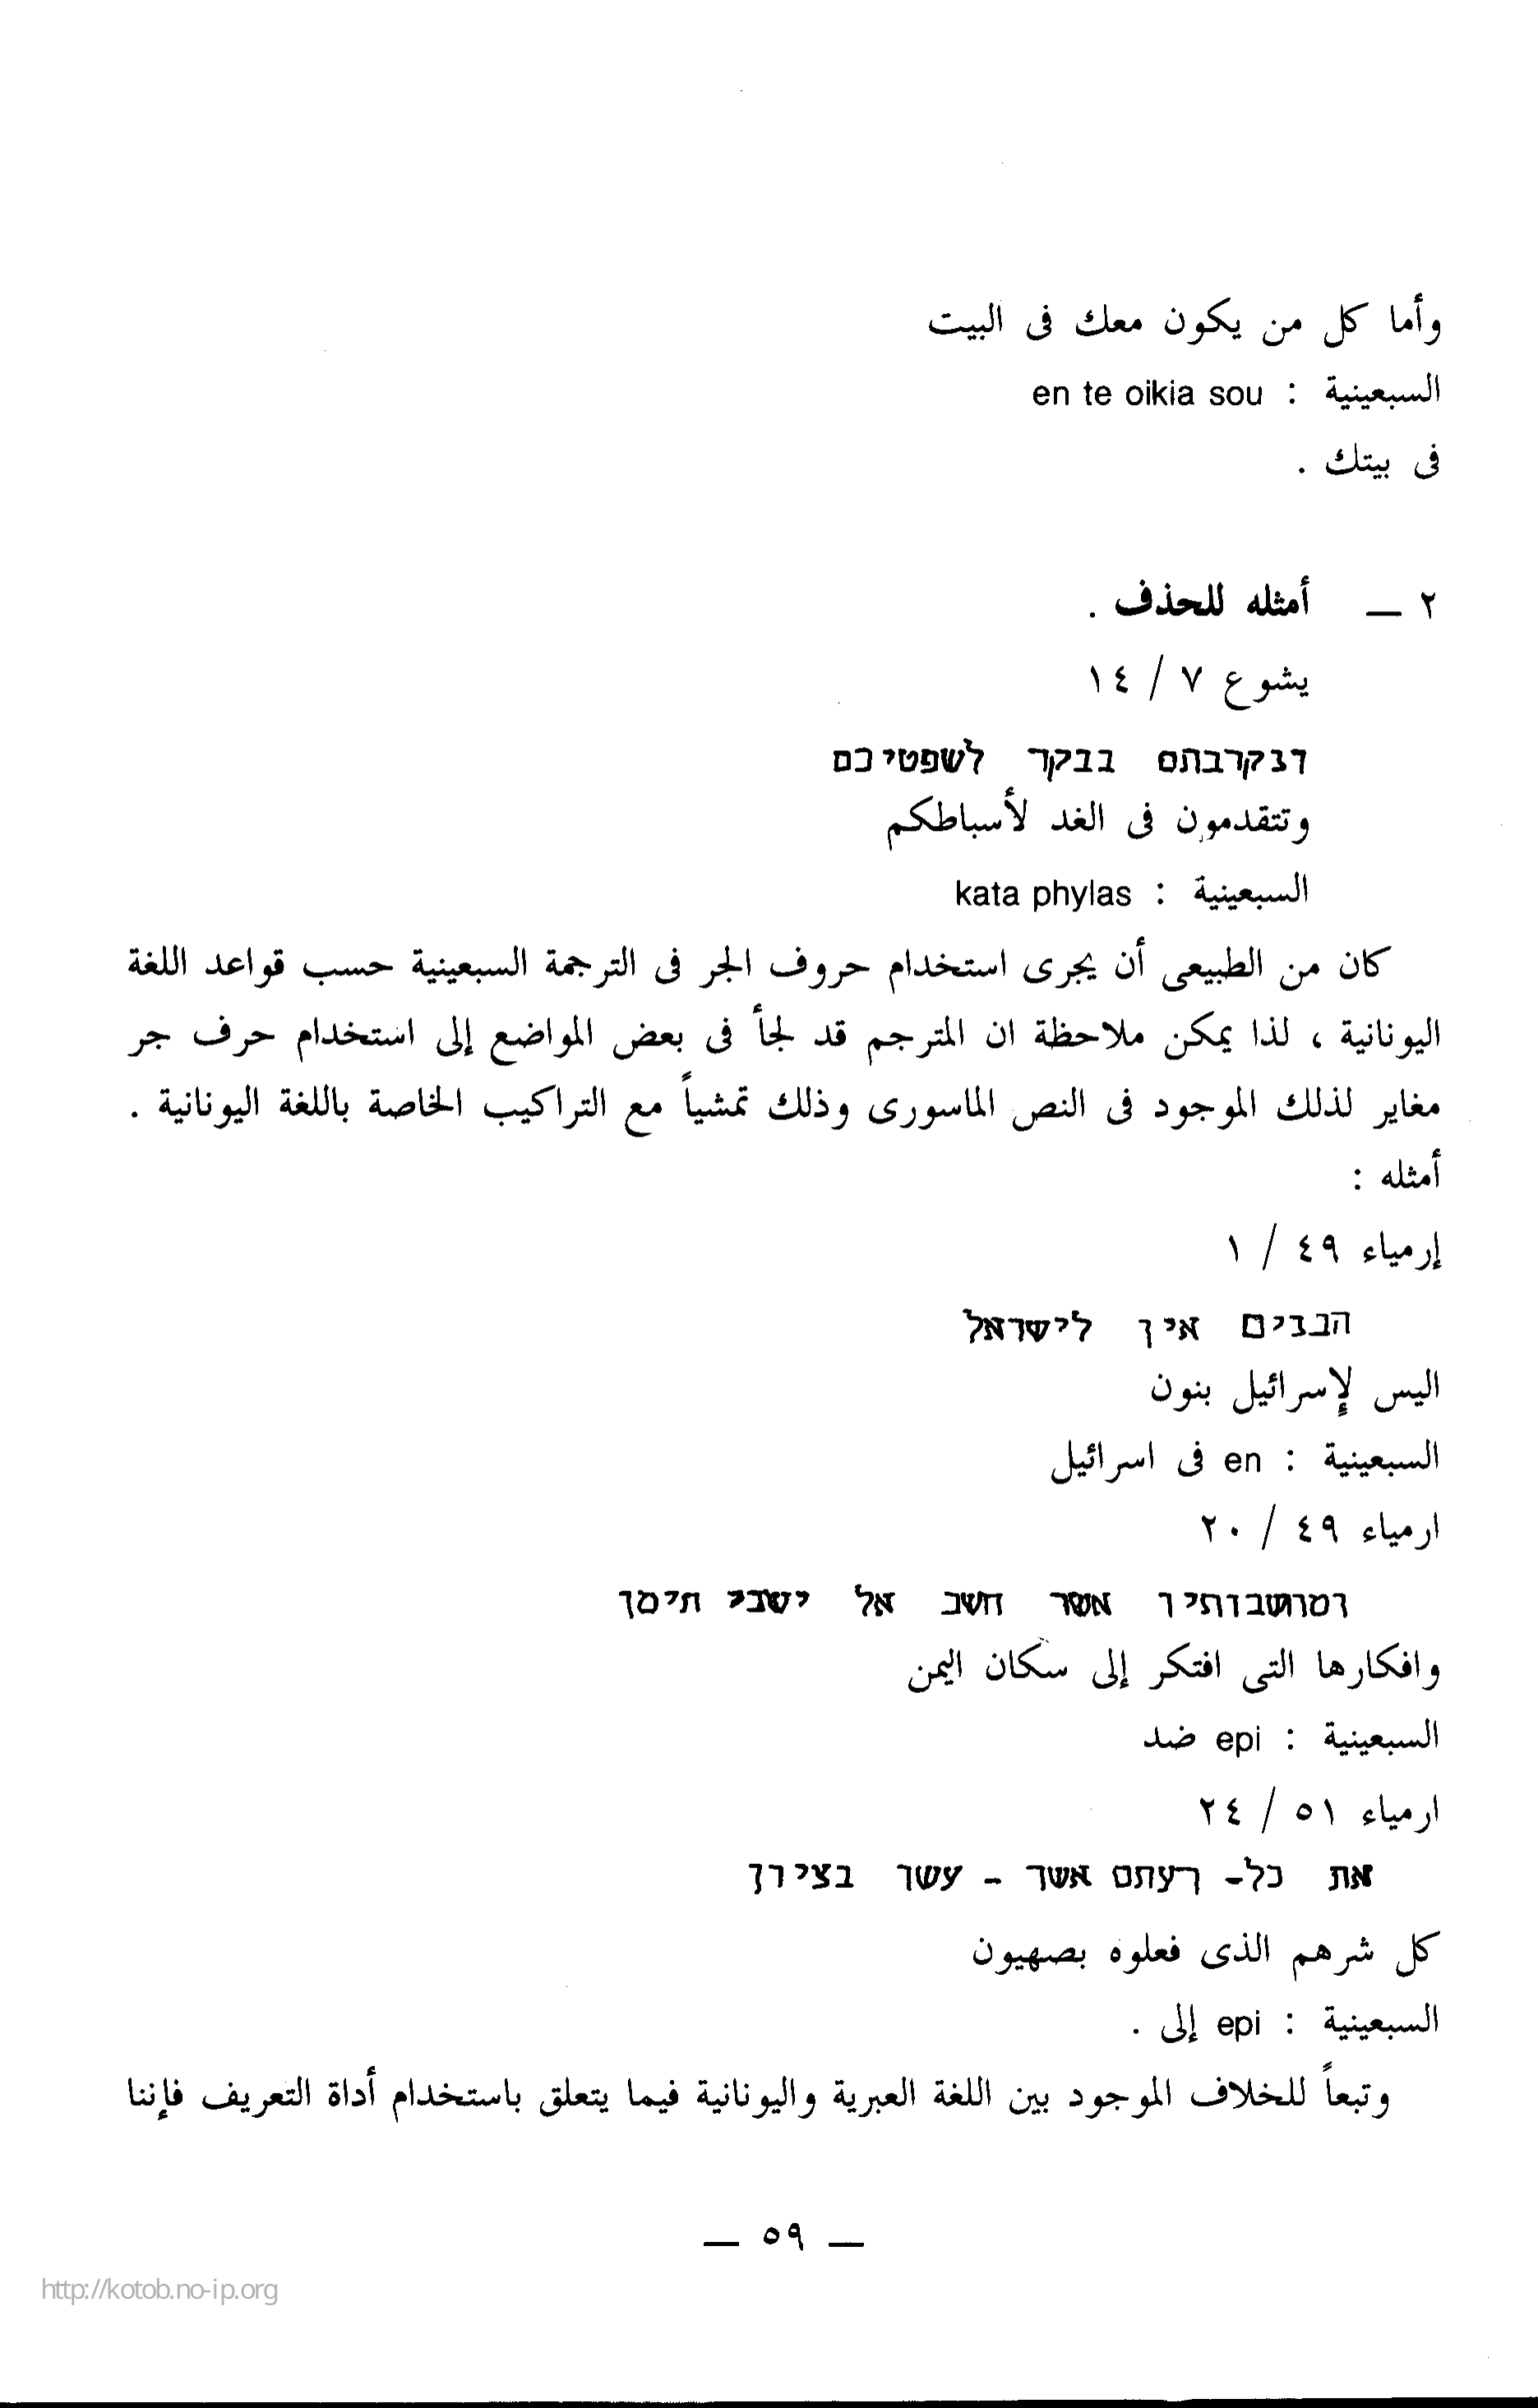 وأما كل من يكون معك فى البيت
السبعينية : en te oikia sou
فى بيتك .
٢ — أمثله للحذف .
يشوع ٧ / ١٤
ונקרבתם בבקר לשפטיכם
وتتقدمون فى الغد لأسباطكم
السبعينية : kata phylas
كان من الطبيعى أن يجرى استخدام حروف الجر فى الترجمة السبعينية حسب قواعد اللغة
اليونانية ، لذا يمكن ملاحظة ان المترجم قد لجأ فى بعض المواضع إلى استخدام حرف جر
مغاير لذلك الموجود فى النص الماسورى وذلك تمشياً مع التراكيب الخاصة باللغة اليونانية .
أمثله :
إرمياء ٤٩ / ١
הבנים אין לישראל
اليس لإسرائيل بنون
السبعينية : en فى اسرائيل
ارمياء ٤٩ / ٢٠
ומחשבותיו אשר חשב אל ישבי תימן
وافكارها التى افتكر إلى سكان اليمن
السبعينية : epi ضد
ارمياء ٥١ / ٢٤
את כל- רעתם אשר - עשו בציון
كل شرهم الذى فعلوه بصهيون
السبعينية : epi إلى .
وتبعاً للخلاف الموجود بين اللغة العبرية واليونانية فيما يتعلق باستخدام أداة التعريف فإننا
— ٥٩ —
http://kotob.no-ip.org